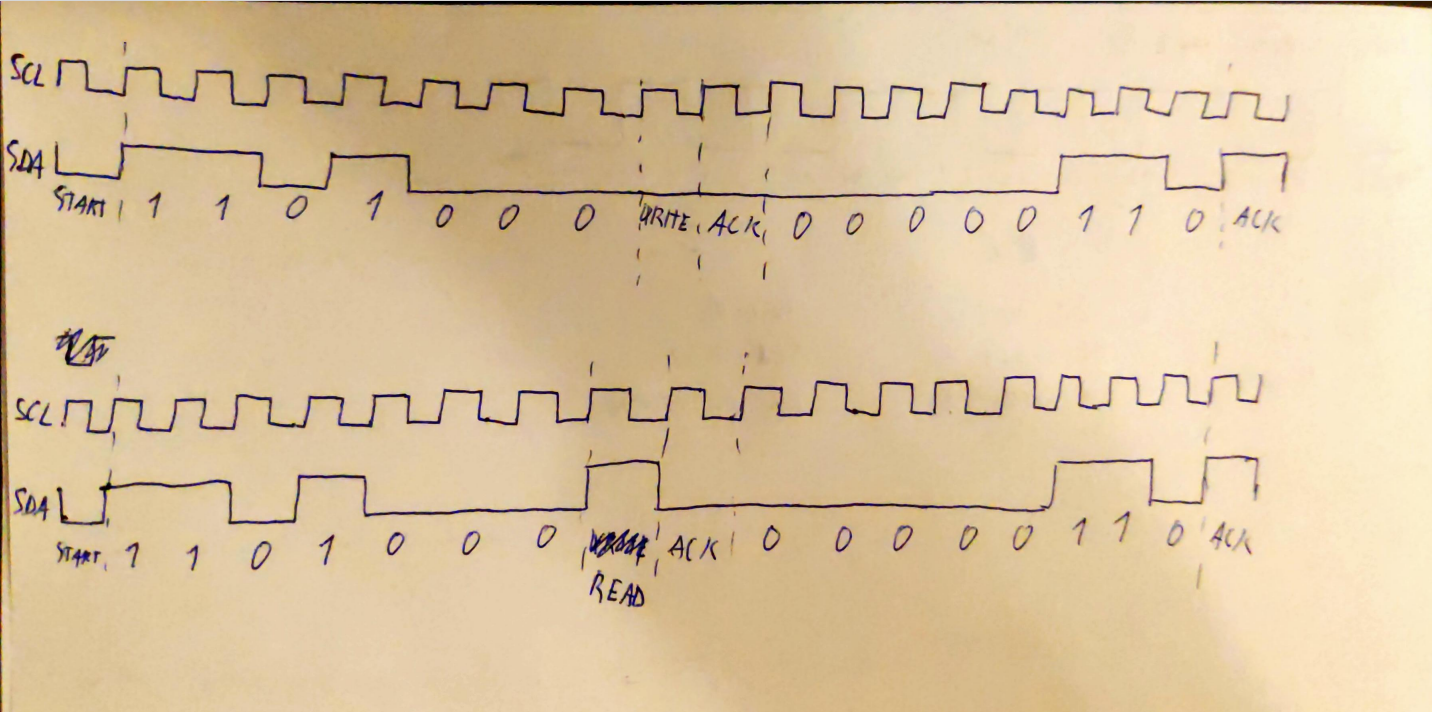 SCL
SDA
START 1 1 0 1 0 0 0 WRITE ACK 0 0 0 0 0 1 1 0 ACK
SCL
SDA
START 1 1 0 1 0 0 0 ACK 0 0 0 0 0 1 1 0 ACK
READ